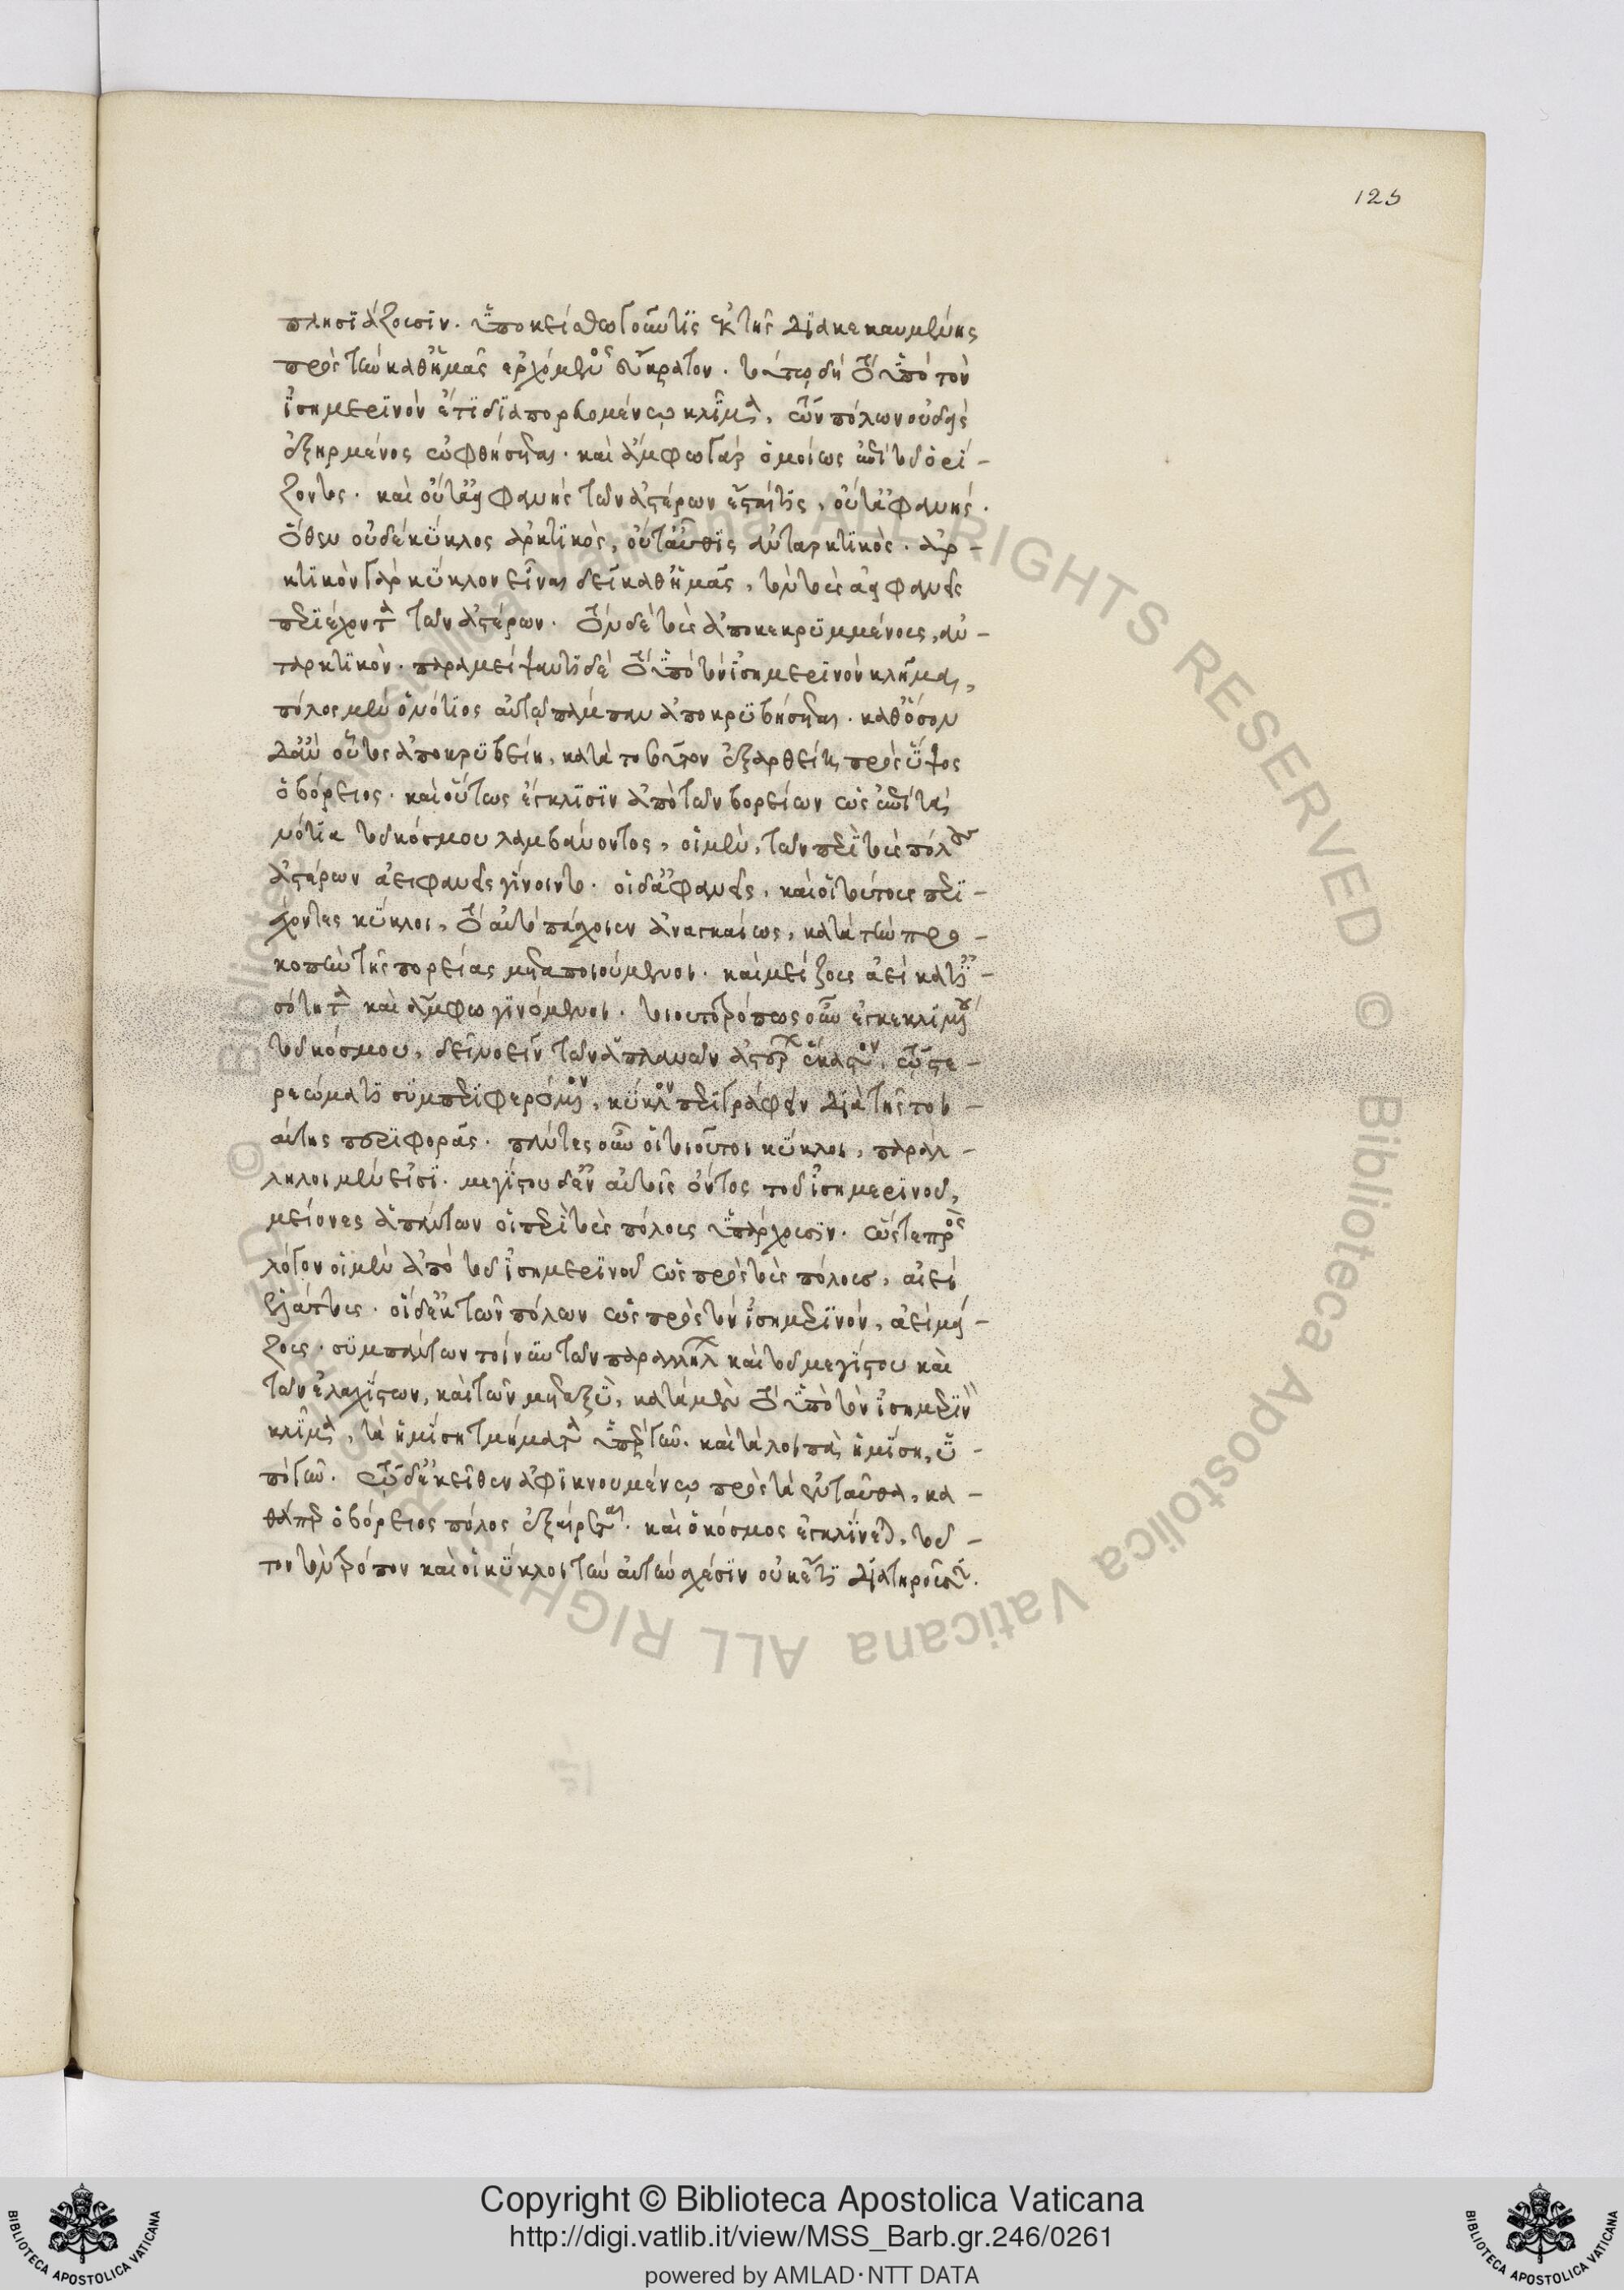 125
πλησϊάζουσϊν. ὑποκείσθω γοῦν τϊς ἐκ τῆς διακεκαυμένης
πρὸς τὴν καθ' ἡμᾶς ἐρχόμενος εὔκρατον. τούτῳ δὴ τὸ ὑπὸ τὸν
ἰσημερϊνὸν ἔτϊ δϊαπορευομένῳ κλῖμα, τῶν πόλων οὐδεὶς
ἐξηρμένος ὀφθήσεται. καὶ ἄμφω γὰρ ὁμοίως ἐπὶ τοῦ ὁρί-
ζοντος. καὶ οὔτ' ἀειφανὴς τῶν ἀστέρων ἔσταί τϊς, οὔτ' ἀφανής.
ὅθεν οὐδὲ κύκλος ἀρκτϊκὸς, οὔτ' αὖθϊς ἀνταρκτϊκὸς. ἀρ-
κτϊκὸν γὰρ κύκλον εἶναι δεῖ καθ' ἡμᾶς, τὸν τοὺς ἀειφανεῖς
περϊέχοντα τῶν ἀστέρων. τὸν δὲ τοὺς ἀποκεκρυμμένους, ἀν-
ταρκτϊκὸν. παραμείψαντϊ δὲ τὸ ὑπὸ τὸν ἰσημερϊνὸν κλῆμα,
πόλος μὲν ὁ νότϊος αὐτῷ πάμπαν ἀποκρυβήσεται. καθόσον
δ' ἂν οὗτος ἀποκρυβείη, κατὰ τοσοῦτον ἐξαρθείη πρὸς ὕψος
ὁ βόρειος. καὶ οὕτως ἔγκλϊσϊν ἀπὸ τῶν βορείων ὡς ἐπὶ τὰ
νότϊα τοῦ κόσμου λαμβάνοντος, οἱ μὲν, τῶν περὶ τοὺς πόλους
ἀστέρων ἀειφανεῖς γίνοιντο. οἱ δ' ἀφανεῖς, καὶ οἱ τούτους περϊ-
έχοντες κύκλοι, τὸ αὐτὸ πάσχοιεν ἀναγκαίως, κατὰ τὴν προ-
κοπὴν τῆς πορείας μεταποιούμενοι. καὶ μείζους ἀεὶ κατ' ἰ-
σότητα καὶ ἄμφω γϊνόμενοι. τοιουτοτρόπως οὖν ἐγκεκλιμένου
τοῦ κόσμου, δεῖ νοεῖν τῶν ἀπλανῶν ἀστέρων ἕκαστον, τῷ στε-
ρεώματϊ συμπερϊφερόμενον, κύκλον περϊγράφειν διὰ τῆς τοι-
αύτης περϊφορᾶς. πάντες οὖν οἱ τοιοῦτοι κύκλοι, παράλ-
ληλοι μὲν εἰσϊ. μεγίστου δ' ἐν αὐτοῖς ὄντος τοῦ ἰσημερϊνοῦ,
μείονες ἁπάντων οἱ περὶ τοὺς πόλους ὑπάρχουσϊν. ὥστε πρὸς
λόγον οἱ μὲν ἀπὸ τοῦ ἰσημερϊνοῦ ὡς πρὸς τοὺς πόλους, αἰεὶ
ἐλάττους. οἱ δ' ἐκ τῶν πόλων ὡς πρὸς τὸν ἰσημερϊνὸν, ἀεὶ μεί-
ζους. συμπάντων τοίνυν τῶν παραλλήλων καὶ τοῦ μεγίστου καὶ
τῶν ἐλαχίστων, καὶ τῶν μεταξὺ, κατὰ μὲν τὸ ὑπὸ τὸν ἰσημερϊνὸν
κλῖμα, τὰ ἡμίση τμήματα ὑπὲρ γῆν. καὶ τὰ λοιπὰ ἡμίση, ὑ-
πὸ γῆν. τῷ δ' ἐκεῖθεν ἀφϊκνουμένῳ πρὸς τὰ ἐνταῦθα, κα-
θάπερ ὁ βόρειος πόλος ἐξαίρεται. καὶ ὁ κόσμος ἐγκλίνεται, τοῦ-
τον τὸν τρόπον καὶ οἱ κύκλοι τὴν αὐτὴν σχέσϊν οὐκ ἔτϊ διατηροῦσι.
Copyright © Biblioteca Apostolica Vaticana
http://digi.vatlib.it/view/MSS_Barb.gr.246/0261
powered by AMLAD·NTT DATA